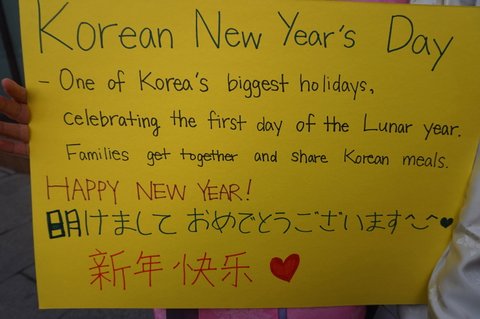 Korean New Year's Day
- One of Korea's biggest holidays,
celebrating the first day of the Lunar year.
Families get together and share Korean meals.
HAPPY NEW YEAR!
明けまして おめでとうございます^-^♥
新年快乐 ♥